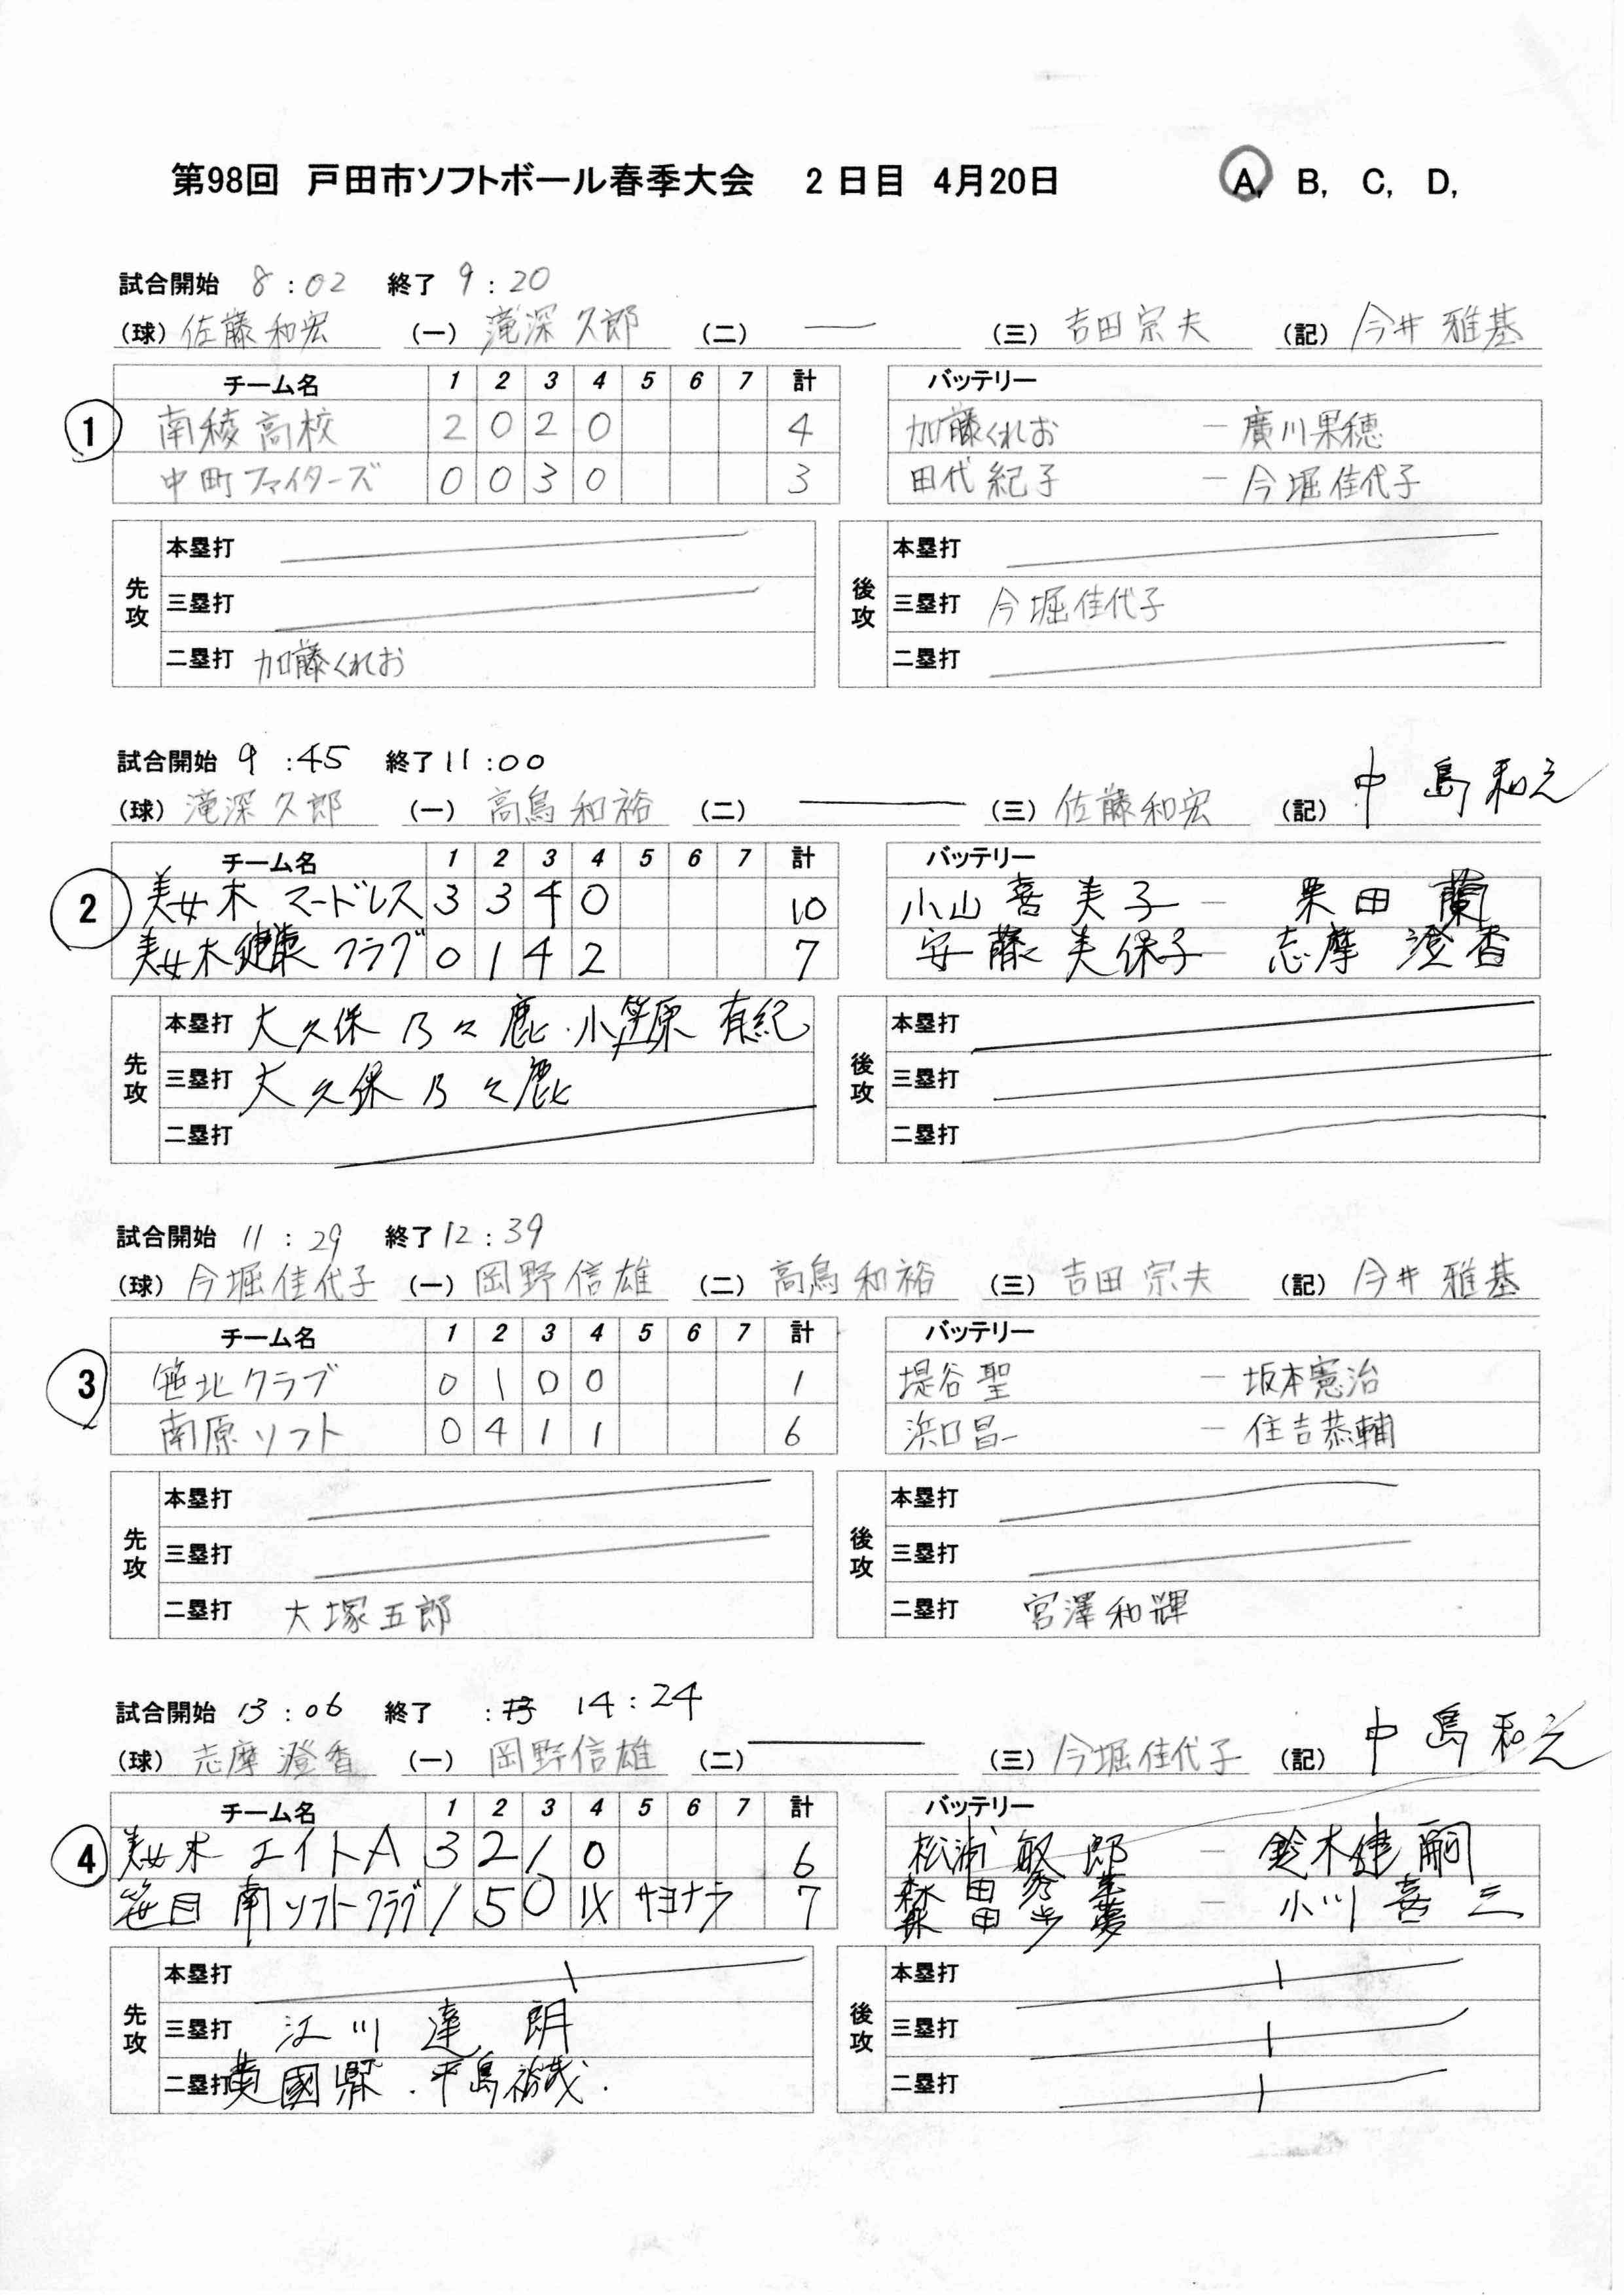 第98回 戸田市ソフトボール春季大会 2日目 4月20日 A, B, C, D,
試合開始 8:02 終了 9:20
(球) 佐藤和宏 (一) 滝深久郎 (二) — (三) 吉田宗夫 (記) 今井雅基
チーム名 1 2 3 4 5 6 7 計 バッテリー
1 南稜高校 2 0 2 0 4 加藤くれお － 廣川果穂
中町ファイターズ 0 0 3 0 3 田代紀子 － 今堀佳代子
先攻 本塁打 後攻 本塁打
三塁打 三塁打 今堀佳代子
二塁打 加藤くれお 二塁打
試合開始 9:45 終了 11:00
(球) 滝深久郎 (一) 高鳥和裕 (二) — (三) 佐藤和宏 (記) 中島和之
チーム名 1 2 3 4 5 6 7 計 バッテリー
2 美女木マードレス 3 3 4 0 10 小山喜美子 － 栗田蘭
美女木健康クラブ 0 1 4 2 7 安藤美保子 － 志摩澄香
先攻 本塁打 大久保乃々鹿・小笠原有紀 後攻 本塁打
三塁打 大久保乃々鹿 三塁打
二塁打 二塁打
試合開始 11:29 終了 12:39
(球) 今堀佳代子 (一) 岡野信雄 (二) 高鳥和裕 (三) 吉田宗夫 (記) 今井雅基
チーム名 1 2 3 4 5 6 7 計 バッテリー
3 笹北クラブ 0 1 0 0 1 堤谷聖 － 坂本憲治
南原ソフト 0 4 1 1 6 浜口昌一 － 住吉恭輔
先攻 本塁打 後攻 本塁打
三塁打 三塁打
二塁打 大塚五郎 二塁打 宮澤和輝
試合開始 13:06 終了 : 14:24
(球) 志摩澄香 (一) 岡野信雄 (二) — (三) 今堀佳代子 (記) 中島和之
チーム名 1 2 3 4 5 6 7 計 バッテリー
4 美女木エイトA 3 2 1 0 6 松浦敏郎 － 鈴木健嗣
笹目南ソフトクラブ 1 5 0 1X サヨナラ 7 森田 － 小川喜三
森田歩夢
先攻 本塁打 後攻 本塁打
三塁打 江川達朗 三塁打
二塁打 黄國縣・平島裕哉・ 二塁打